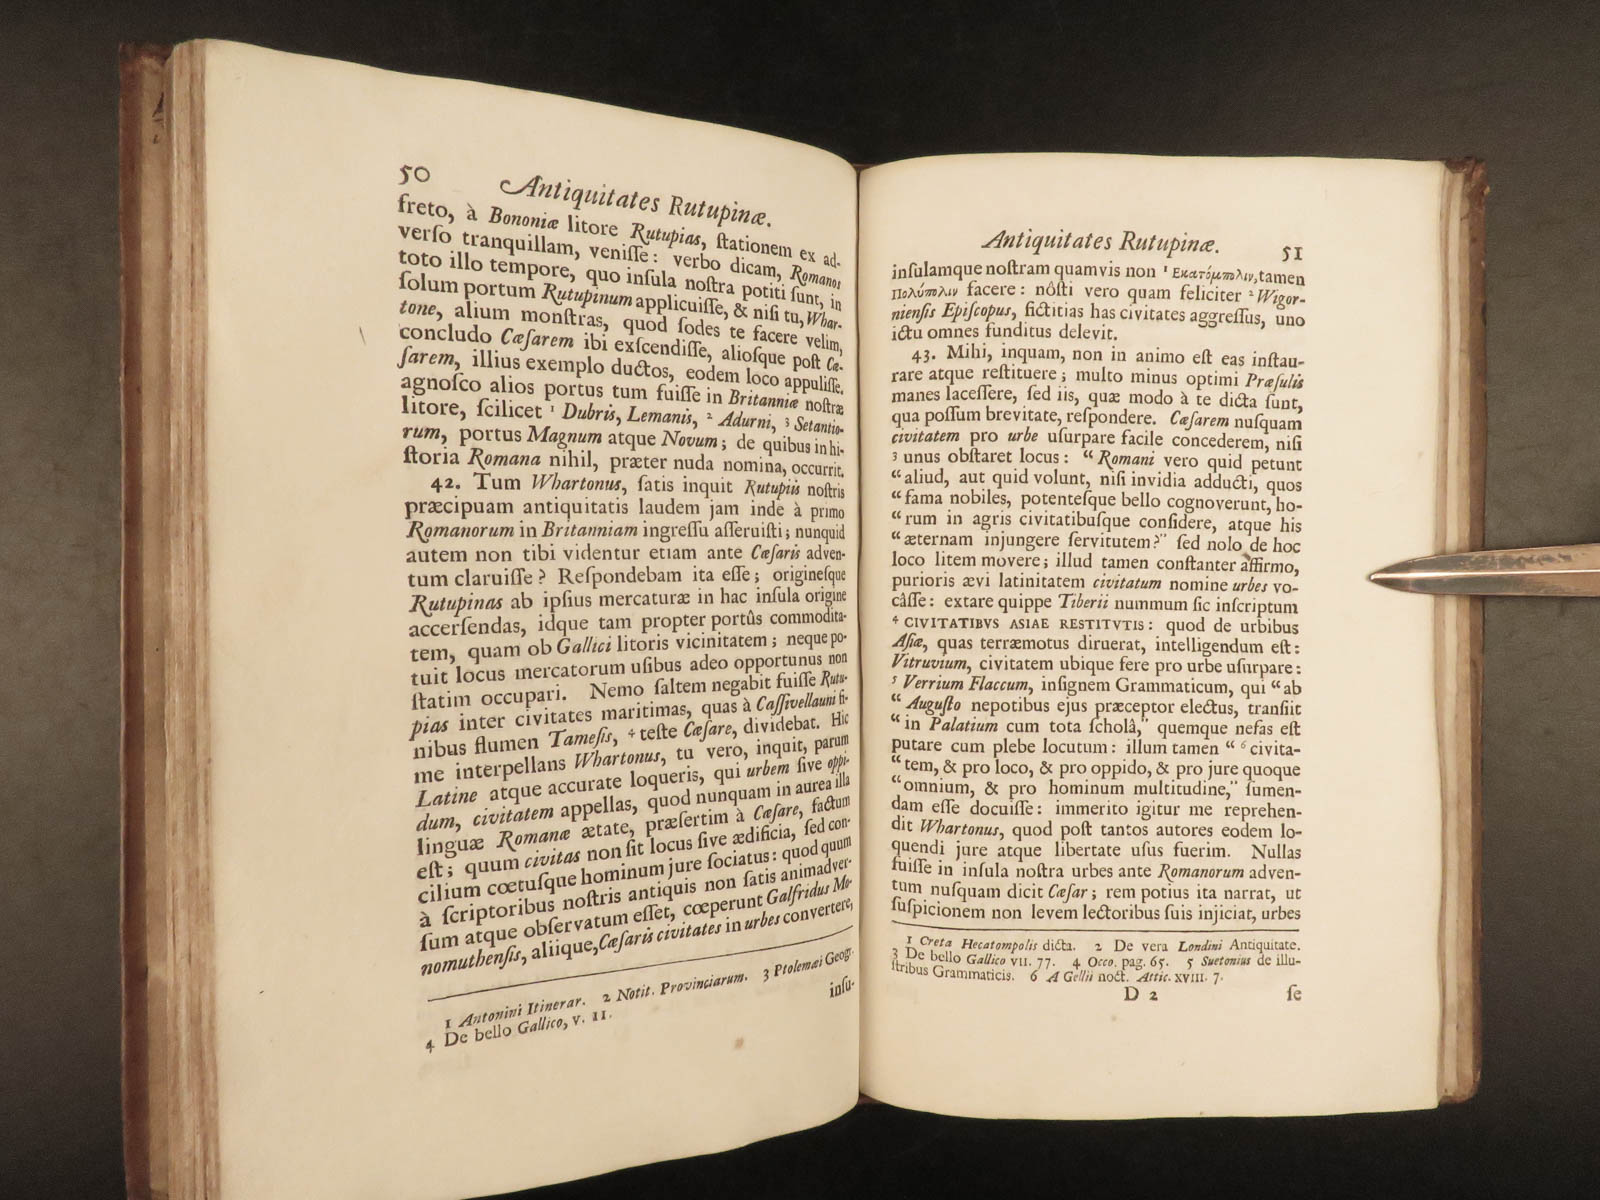 50
Antiquitates Rutupinæ.
freto, à Bononiæ litore Rutupias, ſtationem ex ad-
verſo tranquillam, veniſſe: verbo dicam, Romanos
toto illo tempore, quo inſula noſtra potiti ſunt, in
ſolum portum Rutupinum applicuiſſe, & niſi tu, Whar-
tone, alium monſtras, quod ſodes te facere velim,
concludo Cæſarem ibi exſcendiſſe, alioſque poſt Cæ-
ſarem, illius exemplo ductos, eodem loco appuliſſe.
agnoſco alios portus tum fuiſſe in Britanniæ noſtræ
litore, ſcilicet 1 Dubris, Lemanis, 2 Adurni, 3 Setantio-
rum, portus Magnum atque Novum; de quibus in hi-
ſtoria Romana nihil, præter nuda nomina, occurrit.
42. Tum Whartonus, ſatis inquit Rutupiis noſtris
præcipuam antiquitatis laudem jam inde à primo
Romanorum in Britanniam ingreſſu aſſeruiſti; nunquid
autem non tibi videntur etiam ante Cæſaris adven-
tum claruiſſe? Reſpondebam ita eſſe; origineſque
Rutupinas ab ipſius mercaturæ in hac inſula origine
accerſendas, idque tam propter portûs commodita-
tem, quam ob Gallici litoris vicinitatem; neque po-
tuit locus mercatorum uſibus adeo opportunus non
ſtatim occupari. Nemo ſaltem negabit fuiſſe Rutu-
pias inter civitates maritimas, quas à Caſſivellauni fi-
nibus flumen Tameſis, 4 teſte Cæſare, dividebat. Hic
me interpellans Whartonus, tu vero, inquit, parum
Latine atque accurate loqueris, qui urbem ſive oppi-
dum, civitatem appellas, quod nunquam in aurea illa
linguæ Romanæ ætate, præſertim à Cæſare, factum
eſt; quum civitas non ſit locus ſive ædificia, ſed con-
cilium cœtuſque hominum jure ſociatus: quod quum
à ſcriptoribus noſtris antiquis non ſatis animadver-
ſum atque obſervatum eſſet, cœperunt Galfridus Mo-
nomuthenſis, aliique, Cæſaris civitates in urbes convertere,
1 Antonini Itinerar. 2 Notit. Provinciarum. 3 Ptolemæi Geogr.
4 De bello Gallico, v. 11.
inſu-
Antiquitates Rutupinæ. 51
inſulamque noſtram quamvis non 1 Εκατόμπολιν, tamen
Πολύπολιν facere: nôſti vero quam feliciter 2 Wigor-
nienſis Epiſcopus, fictitias has civitates aggreſſus, uno
ictu omnes funditus delevit.
43. Mihi, inquam, non in animo eſt eas inſtau-
rare atque reſtituere; multo minus optimi Præſulis
manes laceſſere, ſed iis, quæ modo à te dicta ſunt,
qua poſſum brevitate, reſpondere. Cæſarem nuſquam
civitatem pro urbe uſurpare facile concederem, niſi
3 unus obſtaret locus: “Romani vero quid petunt
“aliud, aut quid volunt, niſi invidia adducti, quos
“fama nobiles, potenteſque bello cognoverunt, ho-
“rum in agris civitatibuſque conſidere, atque his
“æternam injungere ſervitutem?” ſed nolo de hoc
loco litem movere; illud tamen conſtanter affirmo,
purioris ævi latinitatem civitatum nomine urbes vo-
câſſe: extare quippe Tiberii nummum ſic inſcriptum
4 CIVITATIBVS ASIAE RESTITVTIS: quod de urbibus
Aſiæ, quas terræmotus diruerat, intelligendum eſt:
Vitruvium, civitatem ubique fere pro urbe uſurpare:
5 Verrium Flaccum, inſignem Grammaticum, qui “ab
“Auguſto nepotibus ejus præceptor electus, tranſiit
“in Palatium cum tota ſcholâ,” quemque nefas eſt
putare cum plebe locutum: illum tamen “ 6 civita-
“tem, & pro loco, & pro oppido, & pro jure quoque
“omnium, & pro hominum multitudine,” ſumen-
dam eſſe docuiſſe: immerito igitur me reprehen-
dit Whartonus, quod poſt tantos autores eodem lo-
quendi jure atque libertate uſus fuerim. Nullas
fuiſſe in inſula noſtra urbes ante Romanorum adven-
tum nuſquam dicit Cæſar; rem potius ita narrat, ut
ſuſpicionem non levem lectoribus ſuis injiciat, urbes
1 Creta Hecatompolis dicta. 2 De vera Londini Antiquitate.
3 De bello Gallico VII. 77. 4 Occo. pag. 65. 5 Suetonius de illu-
ſtribus Grammaticis. 6 A Gellii noct. Attic. XVIII. 7.
D 2 ſe